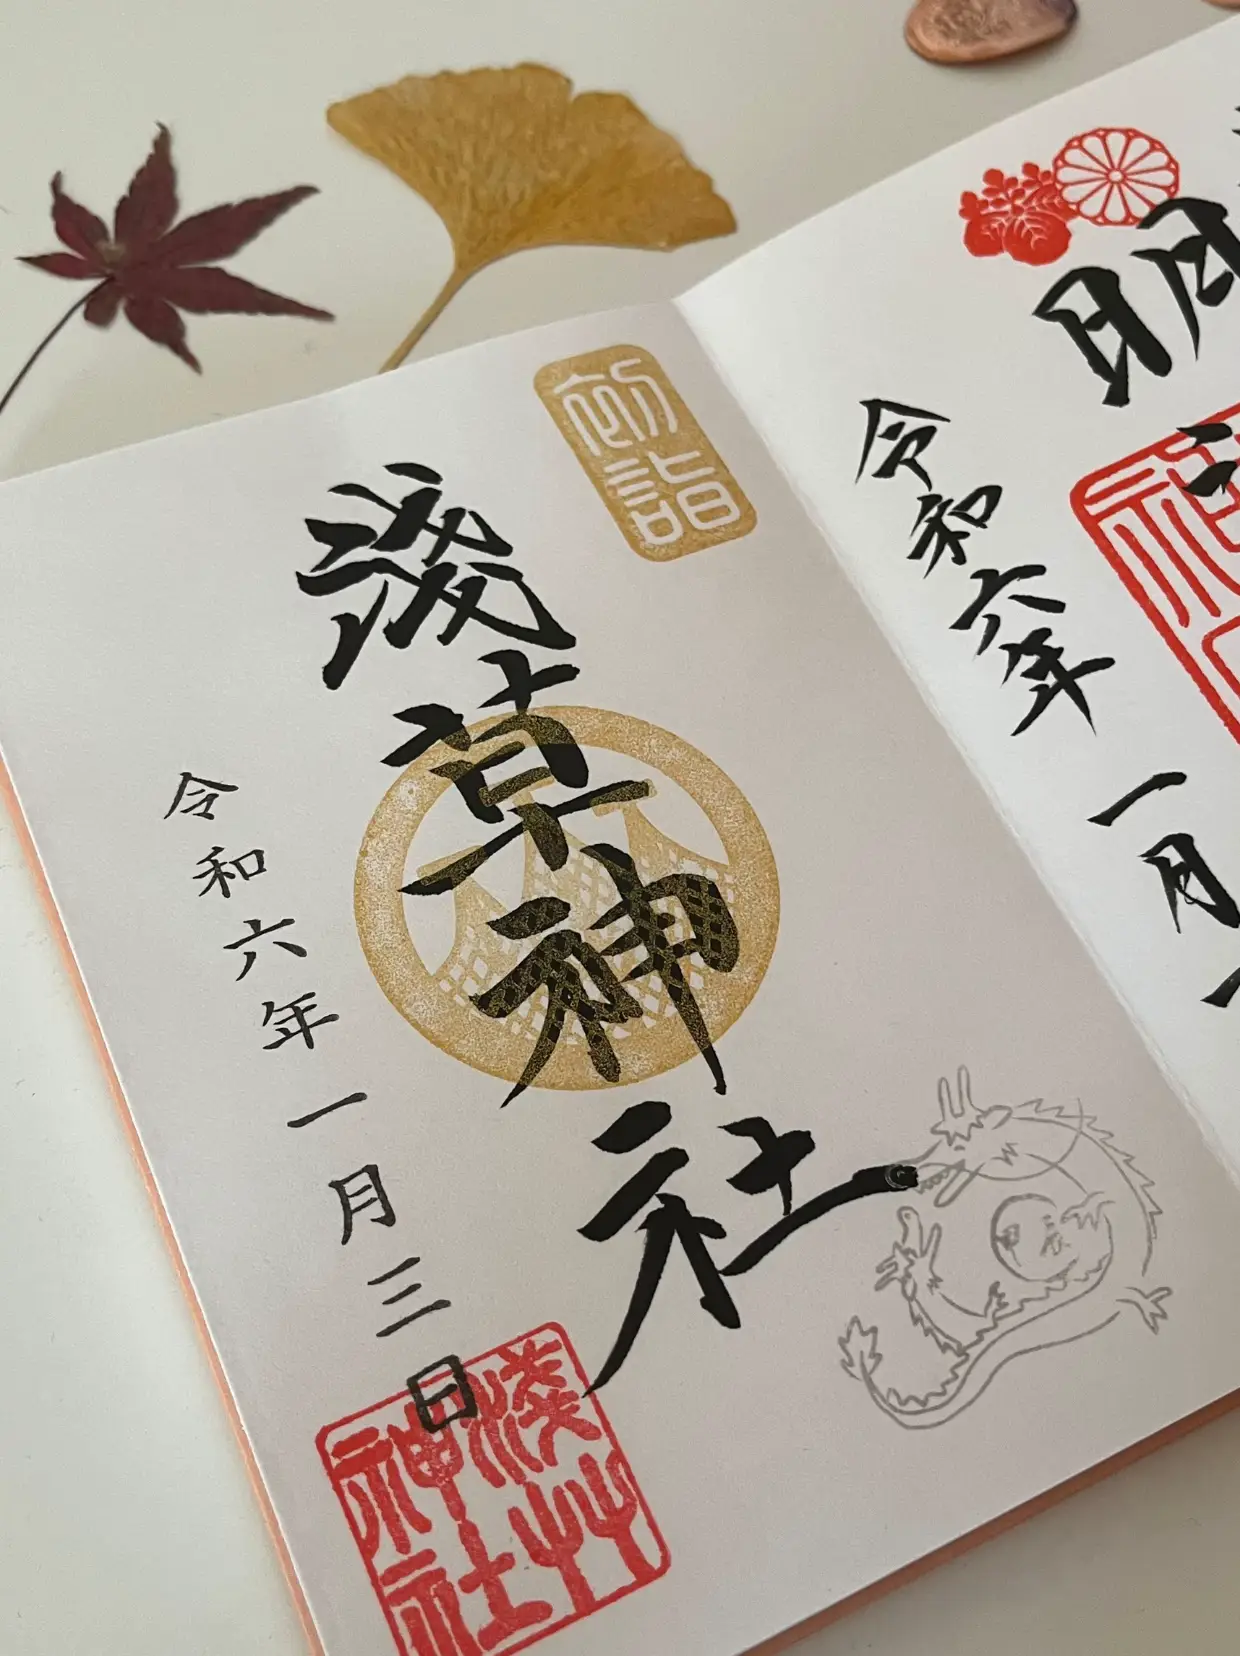 明
令和六年
一月
初詣
淺草神社
令和六年一月三日
淺草神社
甲辰